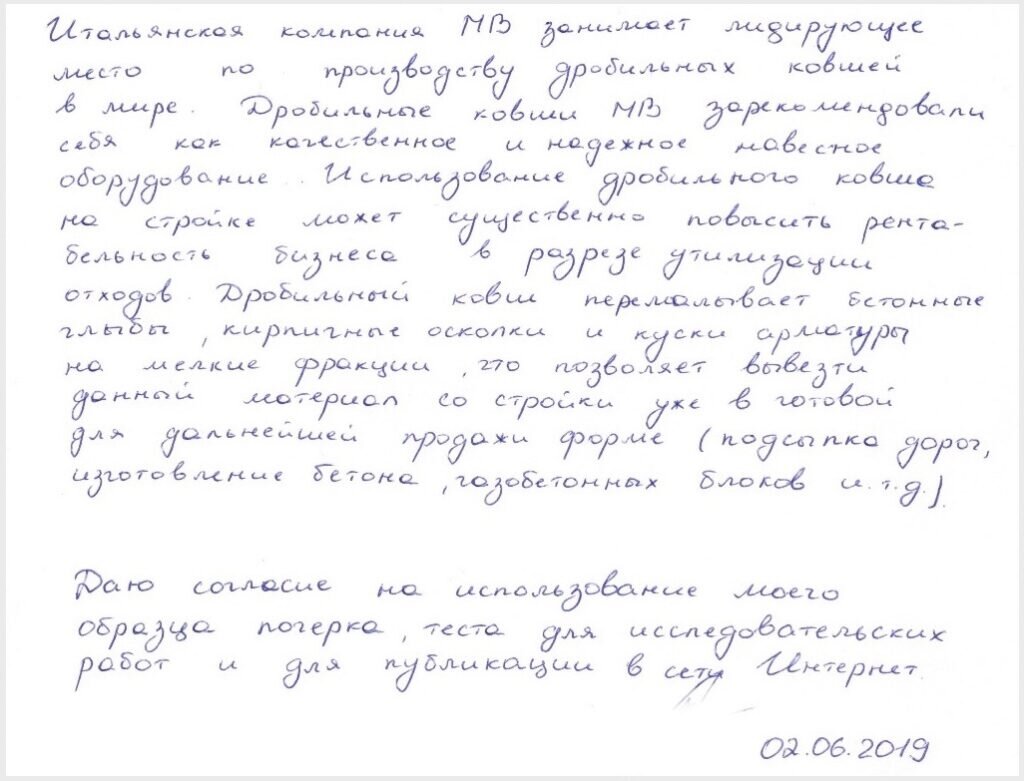 Итальянская компания МВ занимает лидирующее
место по производству дробильных ковшей
в мире. Дробильные ковши МВ зарекомендовали
себя как качественное и надежное навесное
оборудование. Использование дробильного ковша
на стройке может существенно повысить рента-
бельность бизнеса в разрезе утилизации
отходов. Дробильный ковш перемалывает бетонные
глыбы, кирпичные осколки и куски арматуры
на мелкие фракции, что позволяет вывезти
данный материал со стройки уже в готовой
для дальнейшей продажи форме (подсыпка дорог,
изготовление бетона, газобетонных блоков и.т.д.).
Даю согласие на использование моего
образца почерка, теста для исследовательских
работ и для публикации в сети Интернет.
02.06.2019